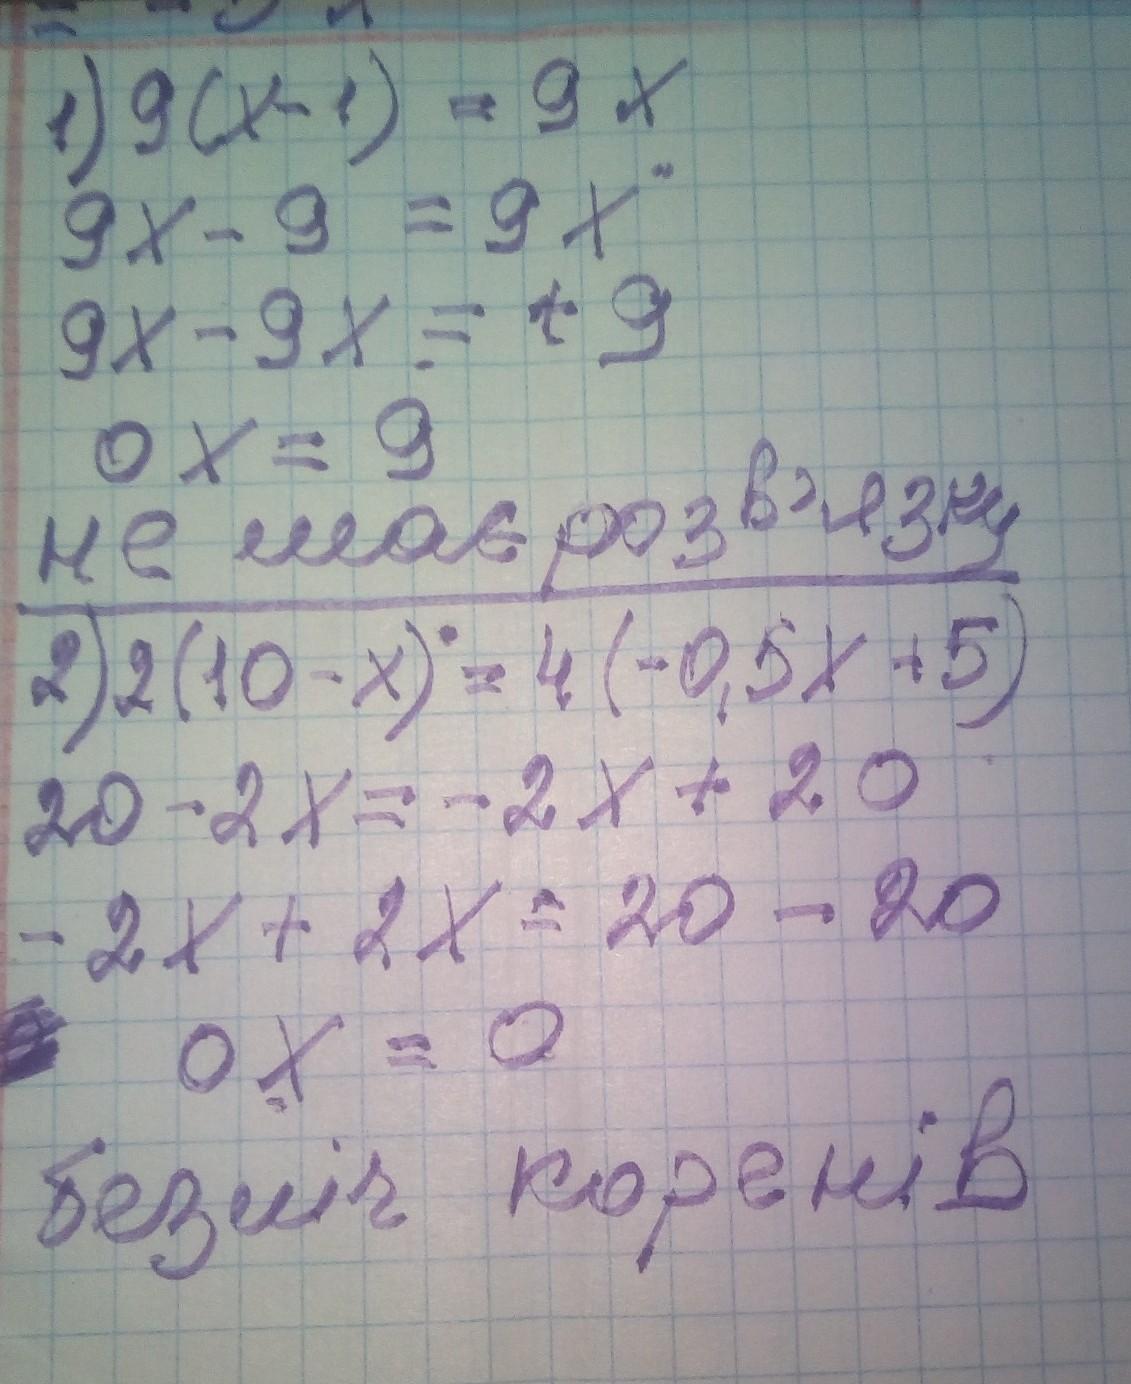 1) 9(x-1) = 9x
9x - 9 = 9x
9x - 9x = +9
0x = 9
не має розв'язку
2) 2(10-x) = 4(-0,5x+5)
20 - 2x = -2x + 20
-2x + 2x = 20 - 20
0x = 0
безліч коренів